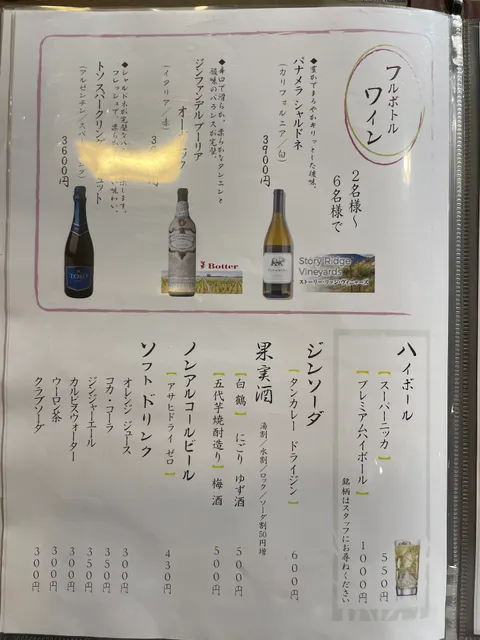 フルボトル
ワイン
2名様〜
6名様で
◆豊かでまろやかキリッとした後味。
パナメラ シャルドネ
(カリフォルニア/白)
3900円
◆辛口で滑らか、柔らかなタンニンと
酸味のバランスが完璧。
ジンファンデル プーリア
(イタリア/赤)
トソ スパークリング
(アルゼンチン/
3600円
Botter
Story Ridge
Vineyards
ストーリー・リッジ・ヴィンヤーズ
ハイボール
【スーパーニッカ】 550円
【プレミアムハイボール】 1000円
銘柄はスタッフにお尋ねください
ジンソーダ
【タンカレー ドライジン】 600円
果実酒
湯割/水割/ロック/ソーダ割50円増
【白鶴】 にごり ゆず酒 500円
【五代芋焼酎造り】 梅酒 500円
ノンアルコールビール
【アサヒドライ ゼロ】 430円
ソフトドリンク
オレンジ ジュース 300円
コカ・コーラ 350円
ジンジャーエール 350円
カルピスウォーター 300円
ウーロン茶 300円
クラブソーダ 300円